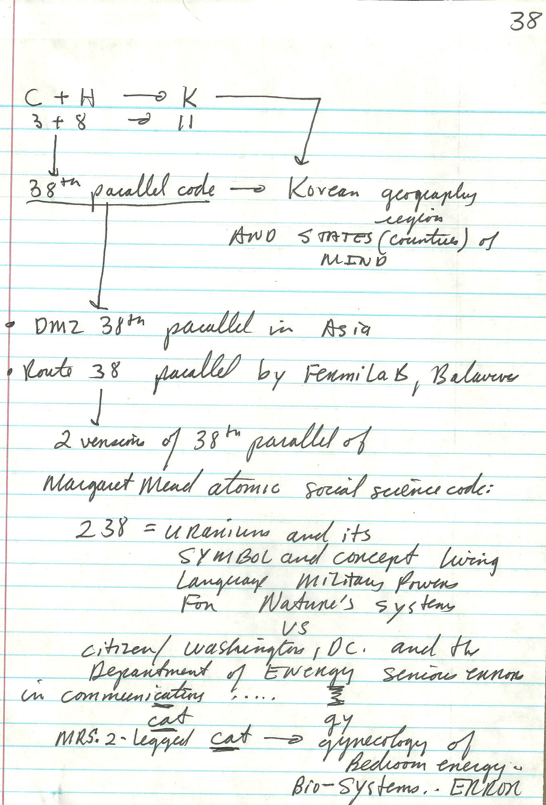 38
C + H → K
3 + 8 → 11
38th parallel code → Korean geography
region
AND STATES (countries) of
MIND
• DMZ 38th parallel in Asia
• Route 38 parallel by FermiLaB, Batavia
2 versions of 38th parallel of
Margaret Mead atomic social science code:
238 = uranium and its
SYMBOL and concept living
Language Military Powers
For Nature's systems
VS
citizen/ Washington, DC. and the
Department of ENERGY serious error
in communications .....
cat gy
MRS. 2-legged cat → gynecology of
Bedroom energy..
Bio-Systems.. ERROR